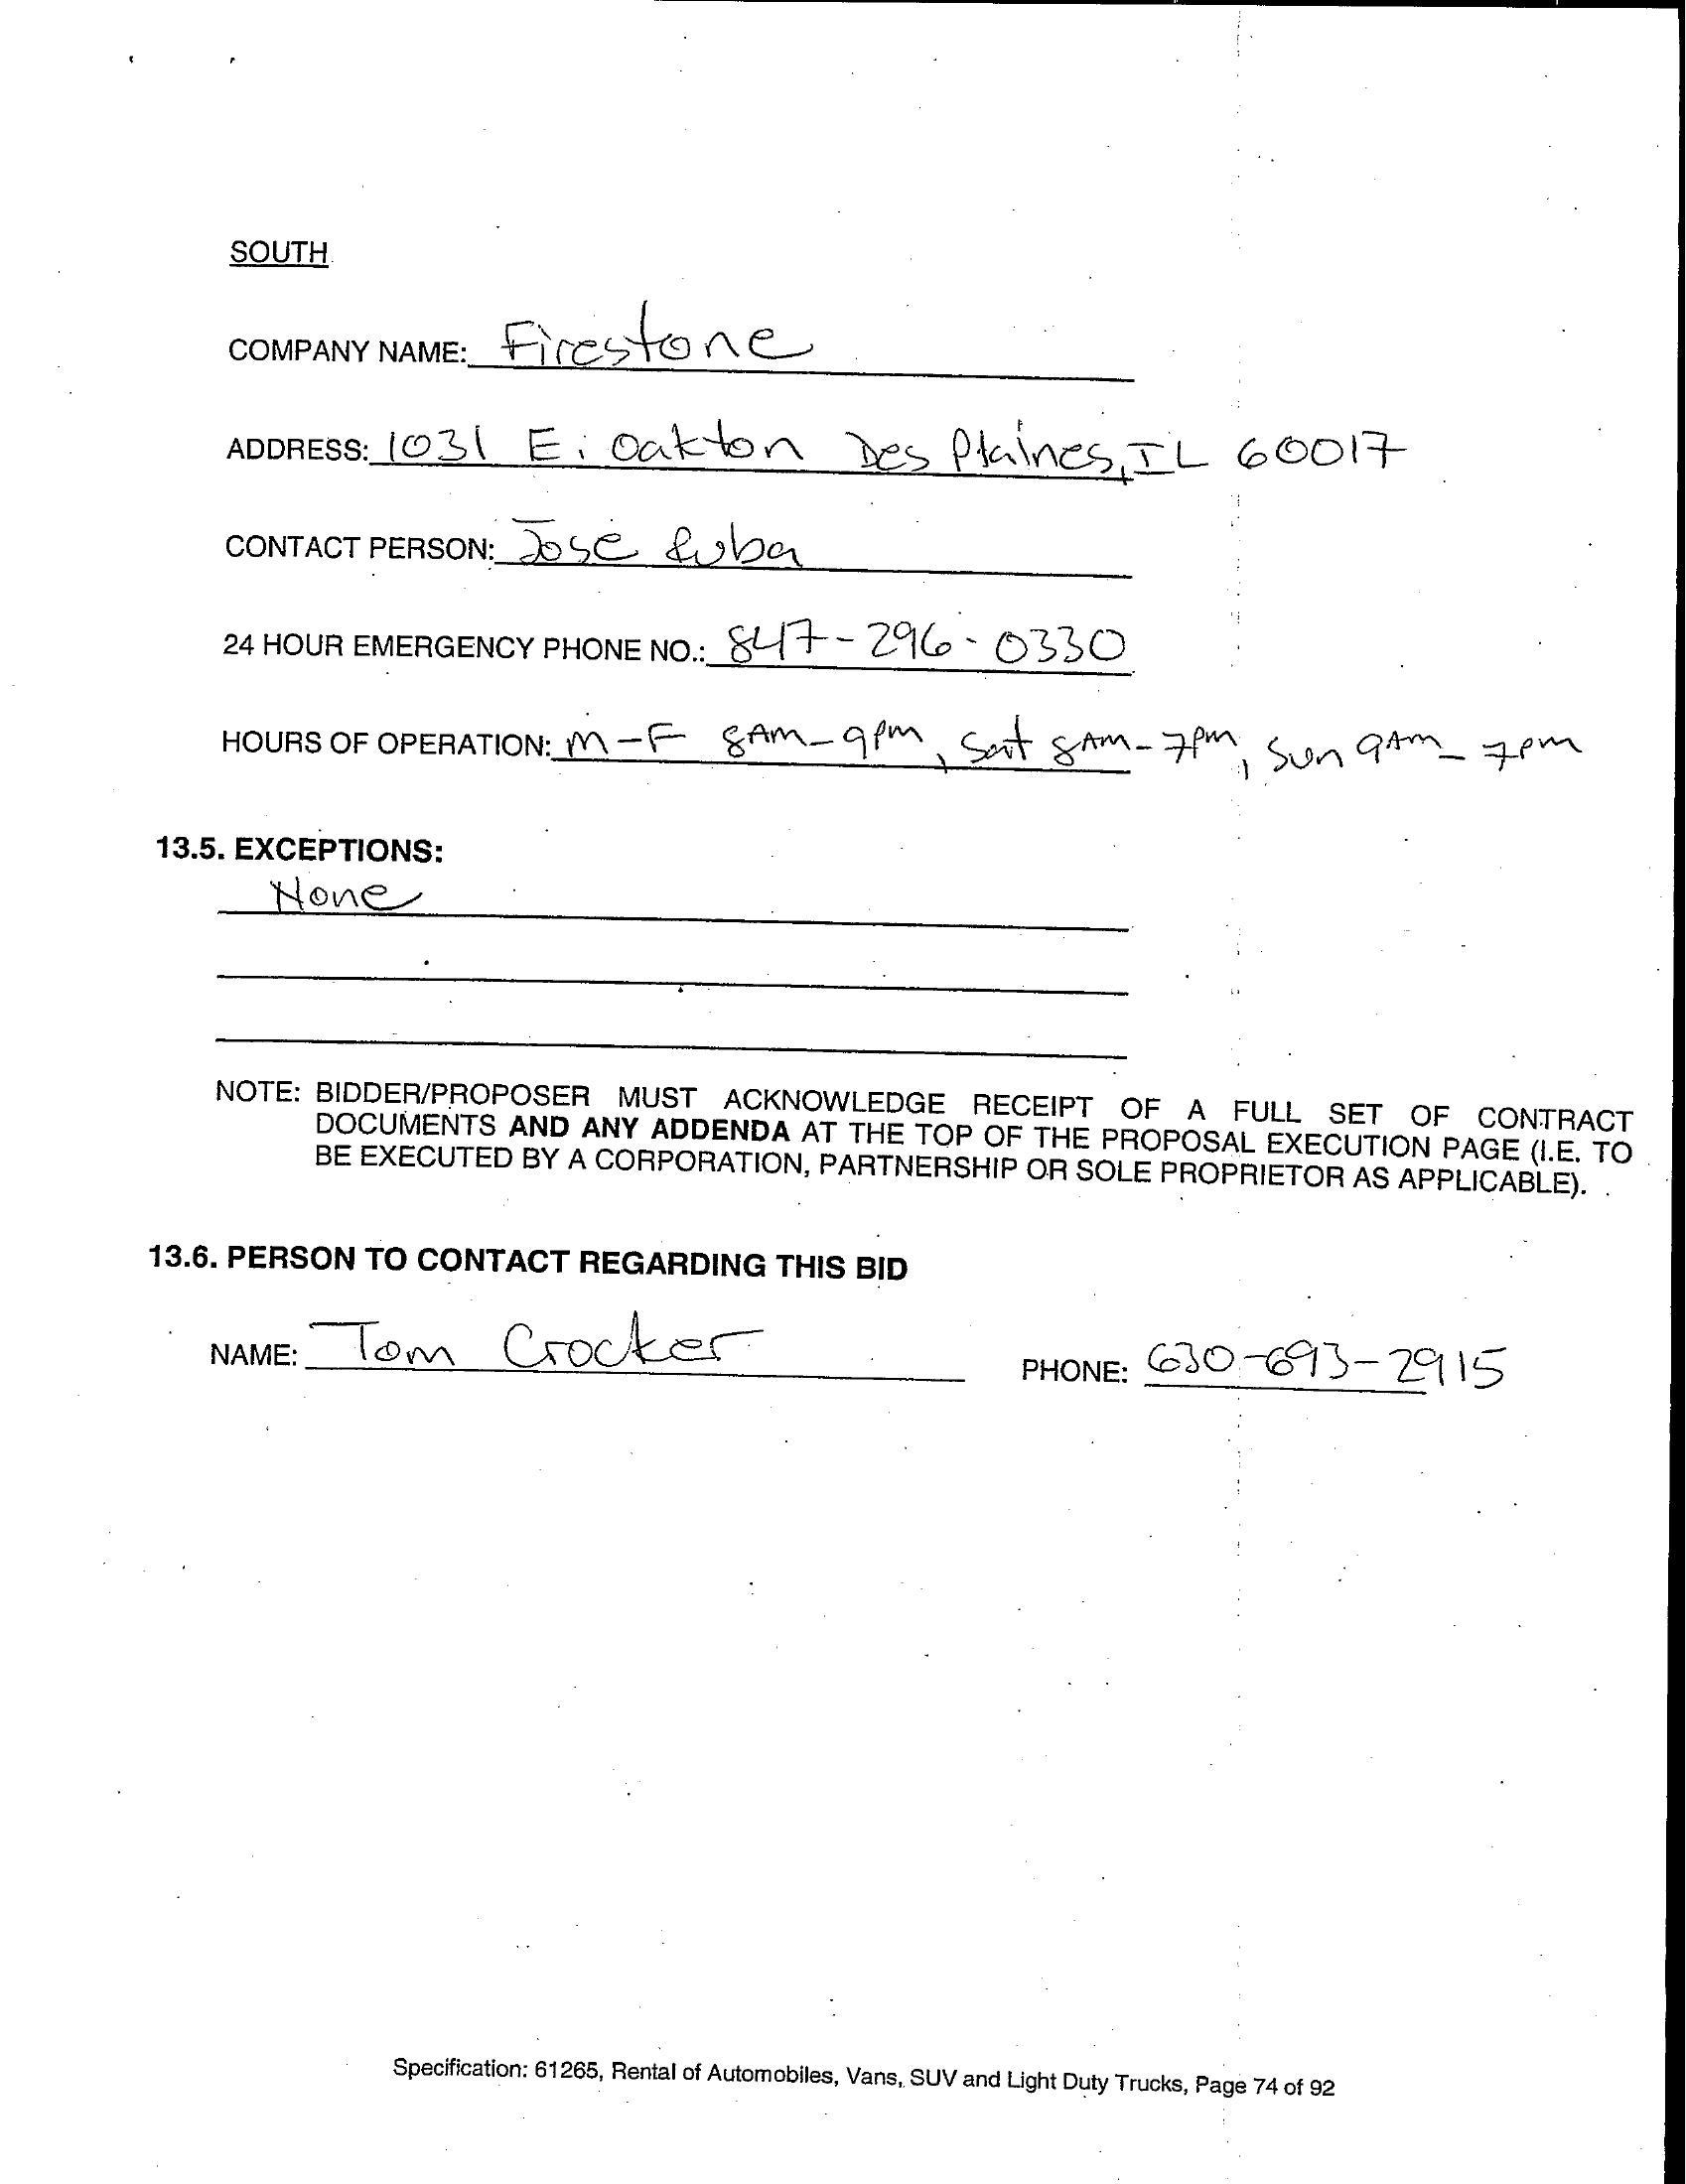 SOUTH
COMPANY NAME: Firestone
ADDRESS: 1031 E. Oakton Des Plaines, IL 60017
CONTACT PERSON: Jose
24 HOUR EMERGENCY PHONE NO.: 847-296-0330
HOURS OF OPERATION: M-F 8AM-9pm, Sat 8AM-7pm, Sun 9AM-7pm
13.5. EXCEPTIONS:
None
NOTE: BIDDER/PROPOSER MUST ACKNOWLEDGE RECEIPT OF A FULL SET OF CONTRACT
DOCUMENTS AND ANY ADDENDA AT THE TOP OF THE PROPOSAL EXECUTION PAGE (I.E. TO
BE EXECUTED BY A CORPORATION, PARTNERSHIP OR SOLE PROPRIETOR AS APPLICABLE).
13.6. PERSON TO CONTACT REGARDING THIS BID
NAME: Tom Crocker PHONE: 630-693-2915
Specification: 61265, Rental of Automobiles, Vans, SUV and Light Duty Trucks, Page 74 of 92